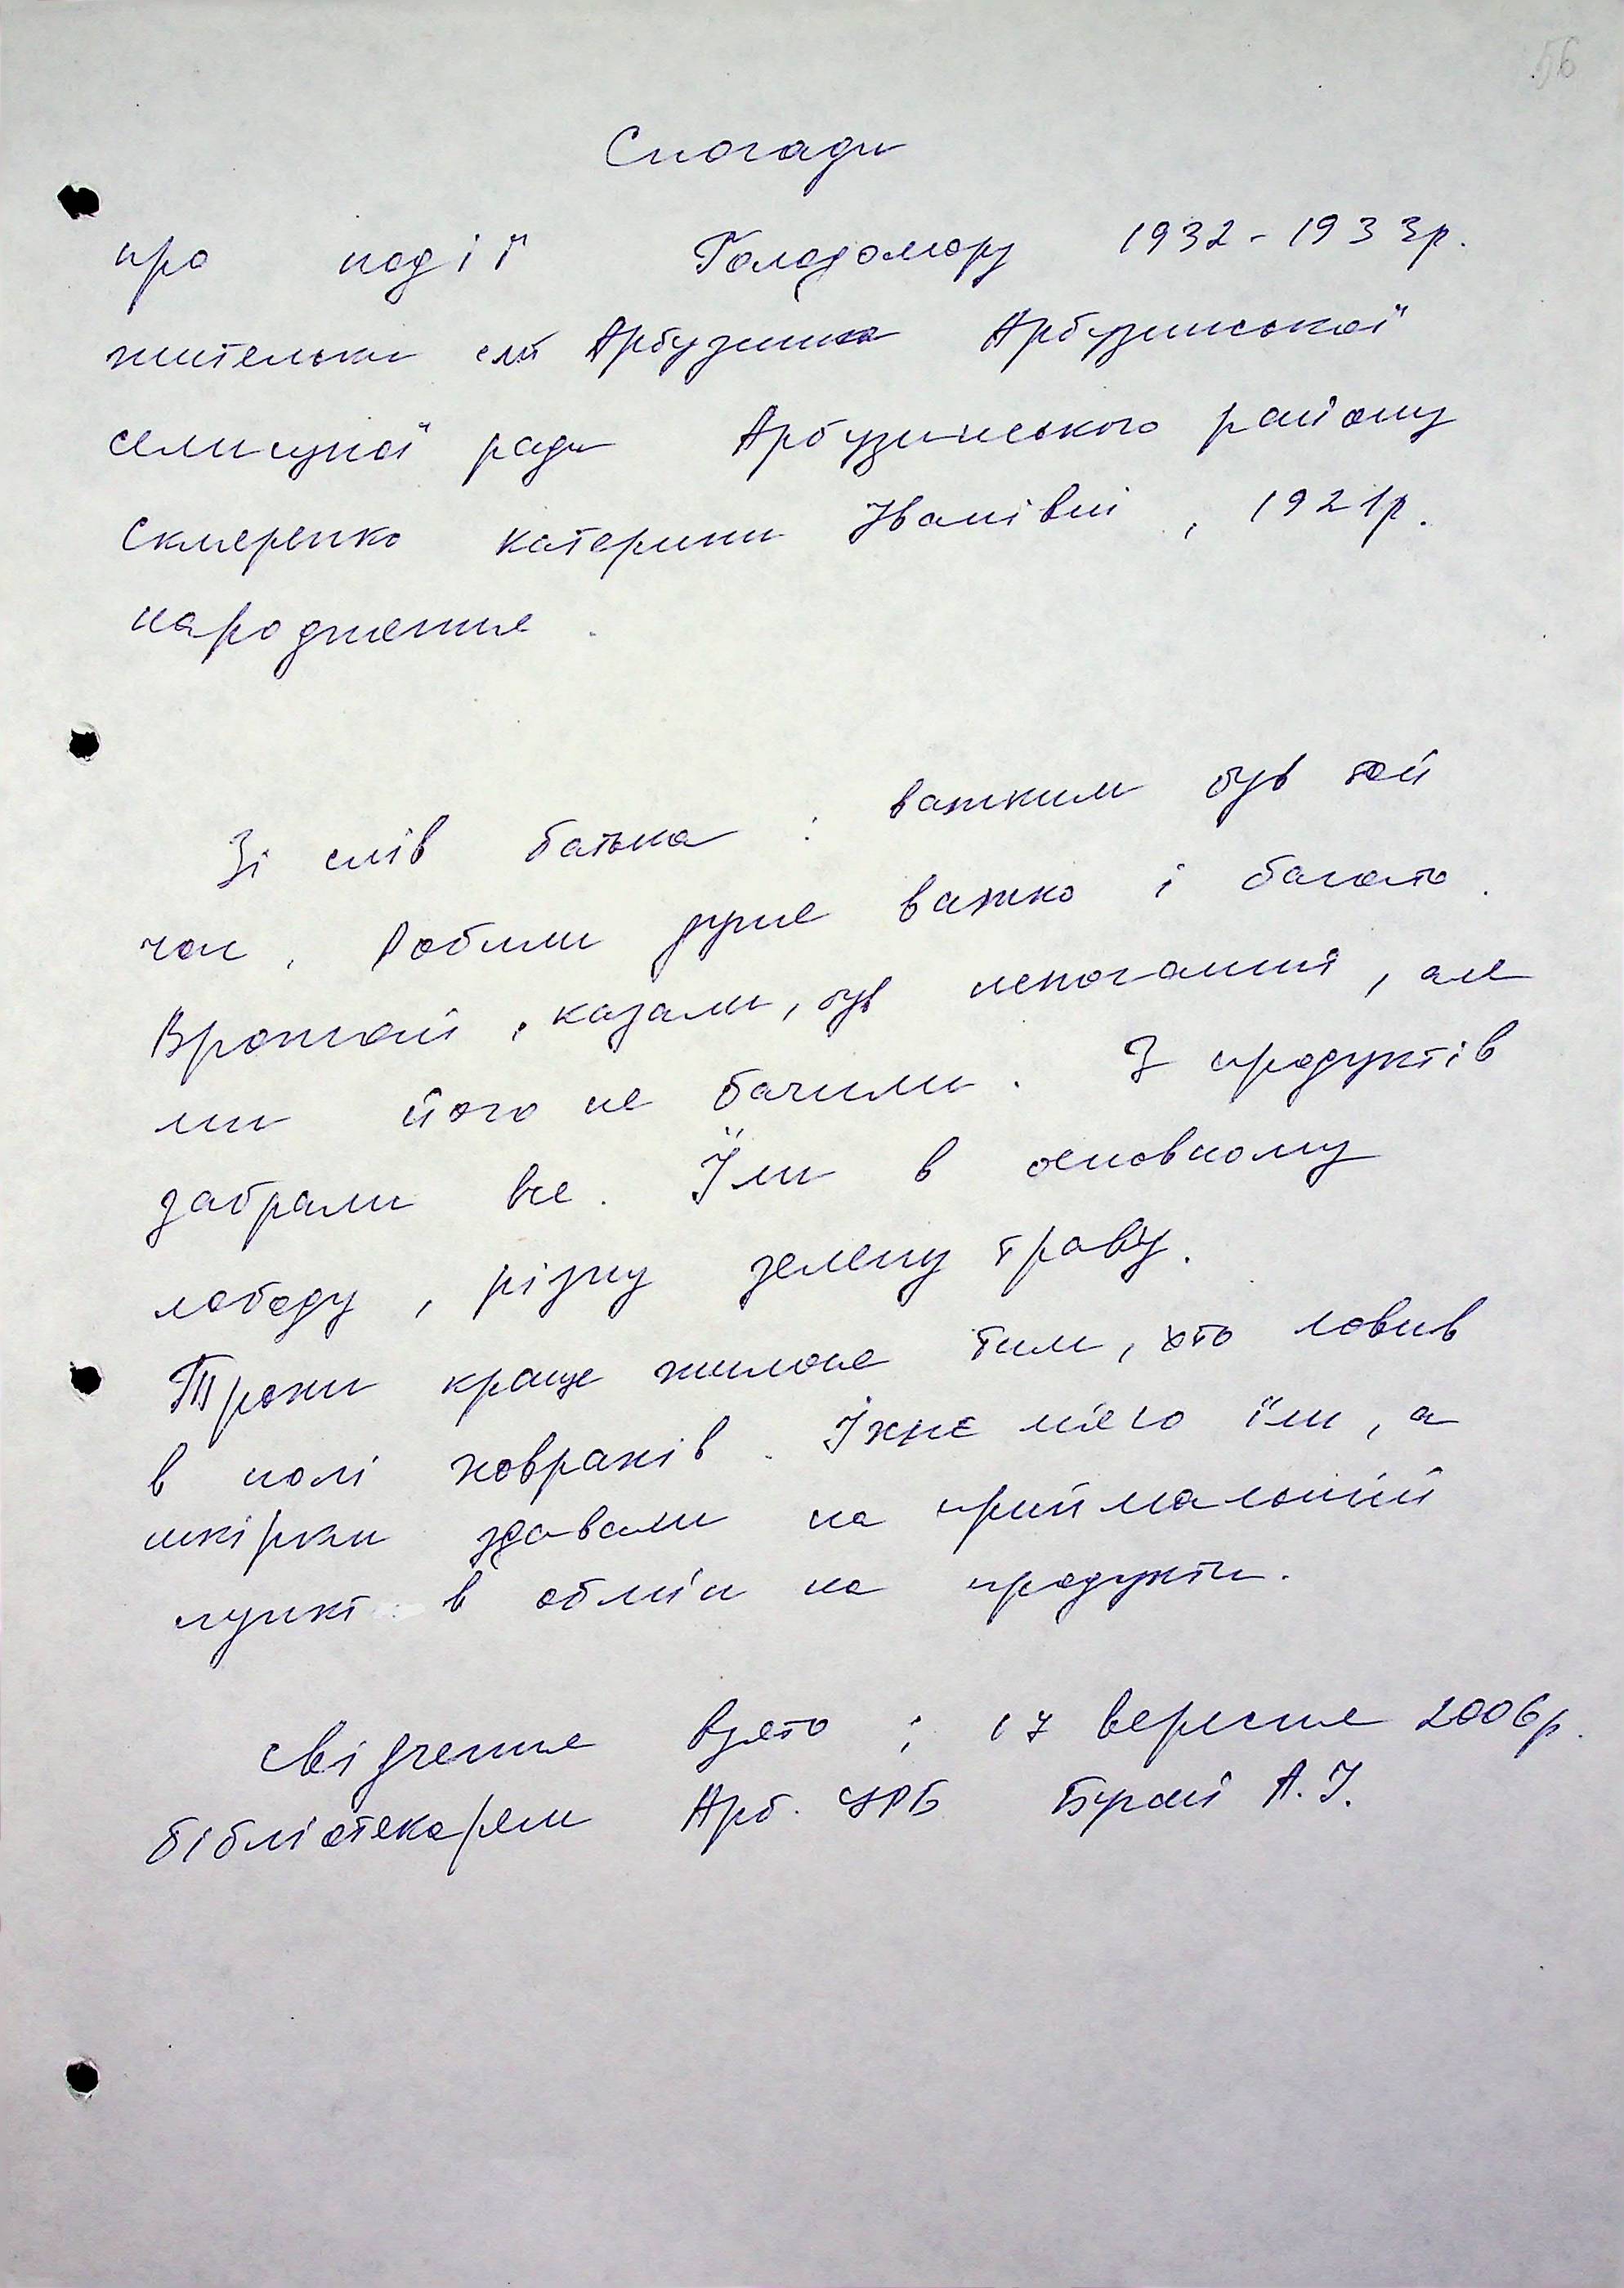 56
Спогади
про події Голодомору 1932-1933р.
жительки смт Арбузинка Арбузинської
селищної ради Арбузинського району
Скляренко Катерини Іванівни, 1921р.
народження.
Зі слів батька: важким був той
час. Робили дуже важко і багато.
Врожай, казали, був непоганий, але
ми його не бачили. З продуктів
забрали все. Їли в основному
лободу, різну зелену траву.
Трохи краще жилося тим, хто ловив
в полі ховрахів. Їхнє м'ясо їли, а
шкірки здавали на приймальний
пункт в обмін на продукти.
Свідчення взято: 17 вересня 2006р.
бібліотекарем Арб. ЦРБ А.І.